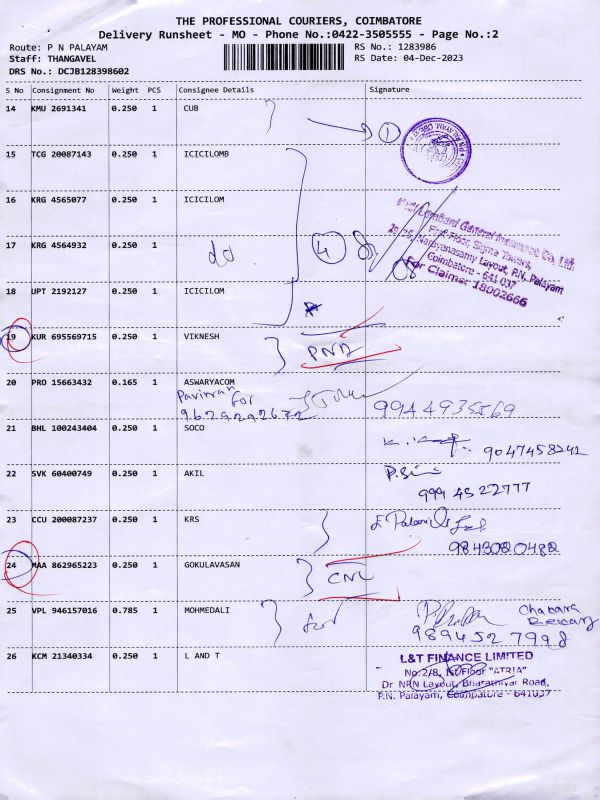 THE PROFESSIONAL COURIERS, COIMBATORE
Delivery Runsheet - MO - Phone No.:0422-3505555 - Page No.:2
Route: P N PALAYAM
Staff: THANGAVEL
DRS No.: DCJB128398602
RS No.: 1283986
RS Date: 04-Dec-2023
S No Consignment No Weight PCS Consignee Details Signature
14 KMU 2691341 0.250 1 CUB
1
15 TCG 20087143 0.250 1 ICICILOMB
16 KRG 4565077 0.250 1 ICICILOM
17 KRG 4564932 0.250 1
do
4
Lombard General Insurance Co. Ltd.
First Floor, Sigma Towers,
Narayanasamy Layout, P.N. Palayam
Coimbatore - 641 037
For Claims: 18002666
18 UPT 2192127 0.250 1 ICICILOM
19 KUR 695569715 0.250 1 VIKNESH
20 PRO 15663432 0.165 1 ASWARYACOM
9629292672
9944935569
21 BHL 100243404 0.250 1 SOCO
9047458242
22 SVK 60400749 0.250 1 AKIL
9994522777
23 CCU 200087237 0.250 1 KRS
9843020482
24 MAA 862965223 0.250 1 GOKULAVASAN
25 VPL 946157016 0.785 1 MOHMEDALI
9894527998
26 KCM 21340334 0.250 1 L AND T
L&T FINANCE LIMITED
No:2/8, Ist Floor "ATRIA"
Dr NRN Layout, Bharathiyar Road,
P.N. Palayam, Coimbatore - 641037